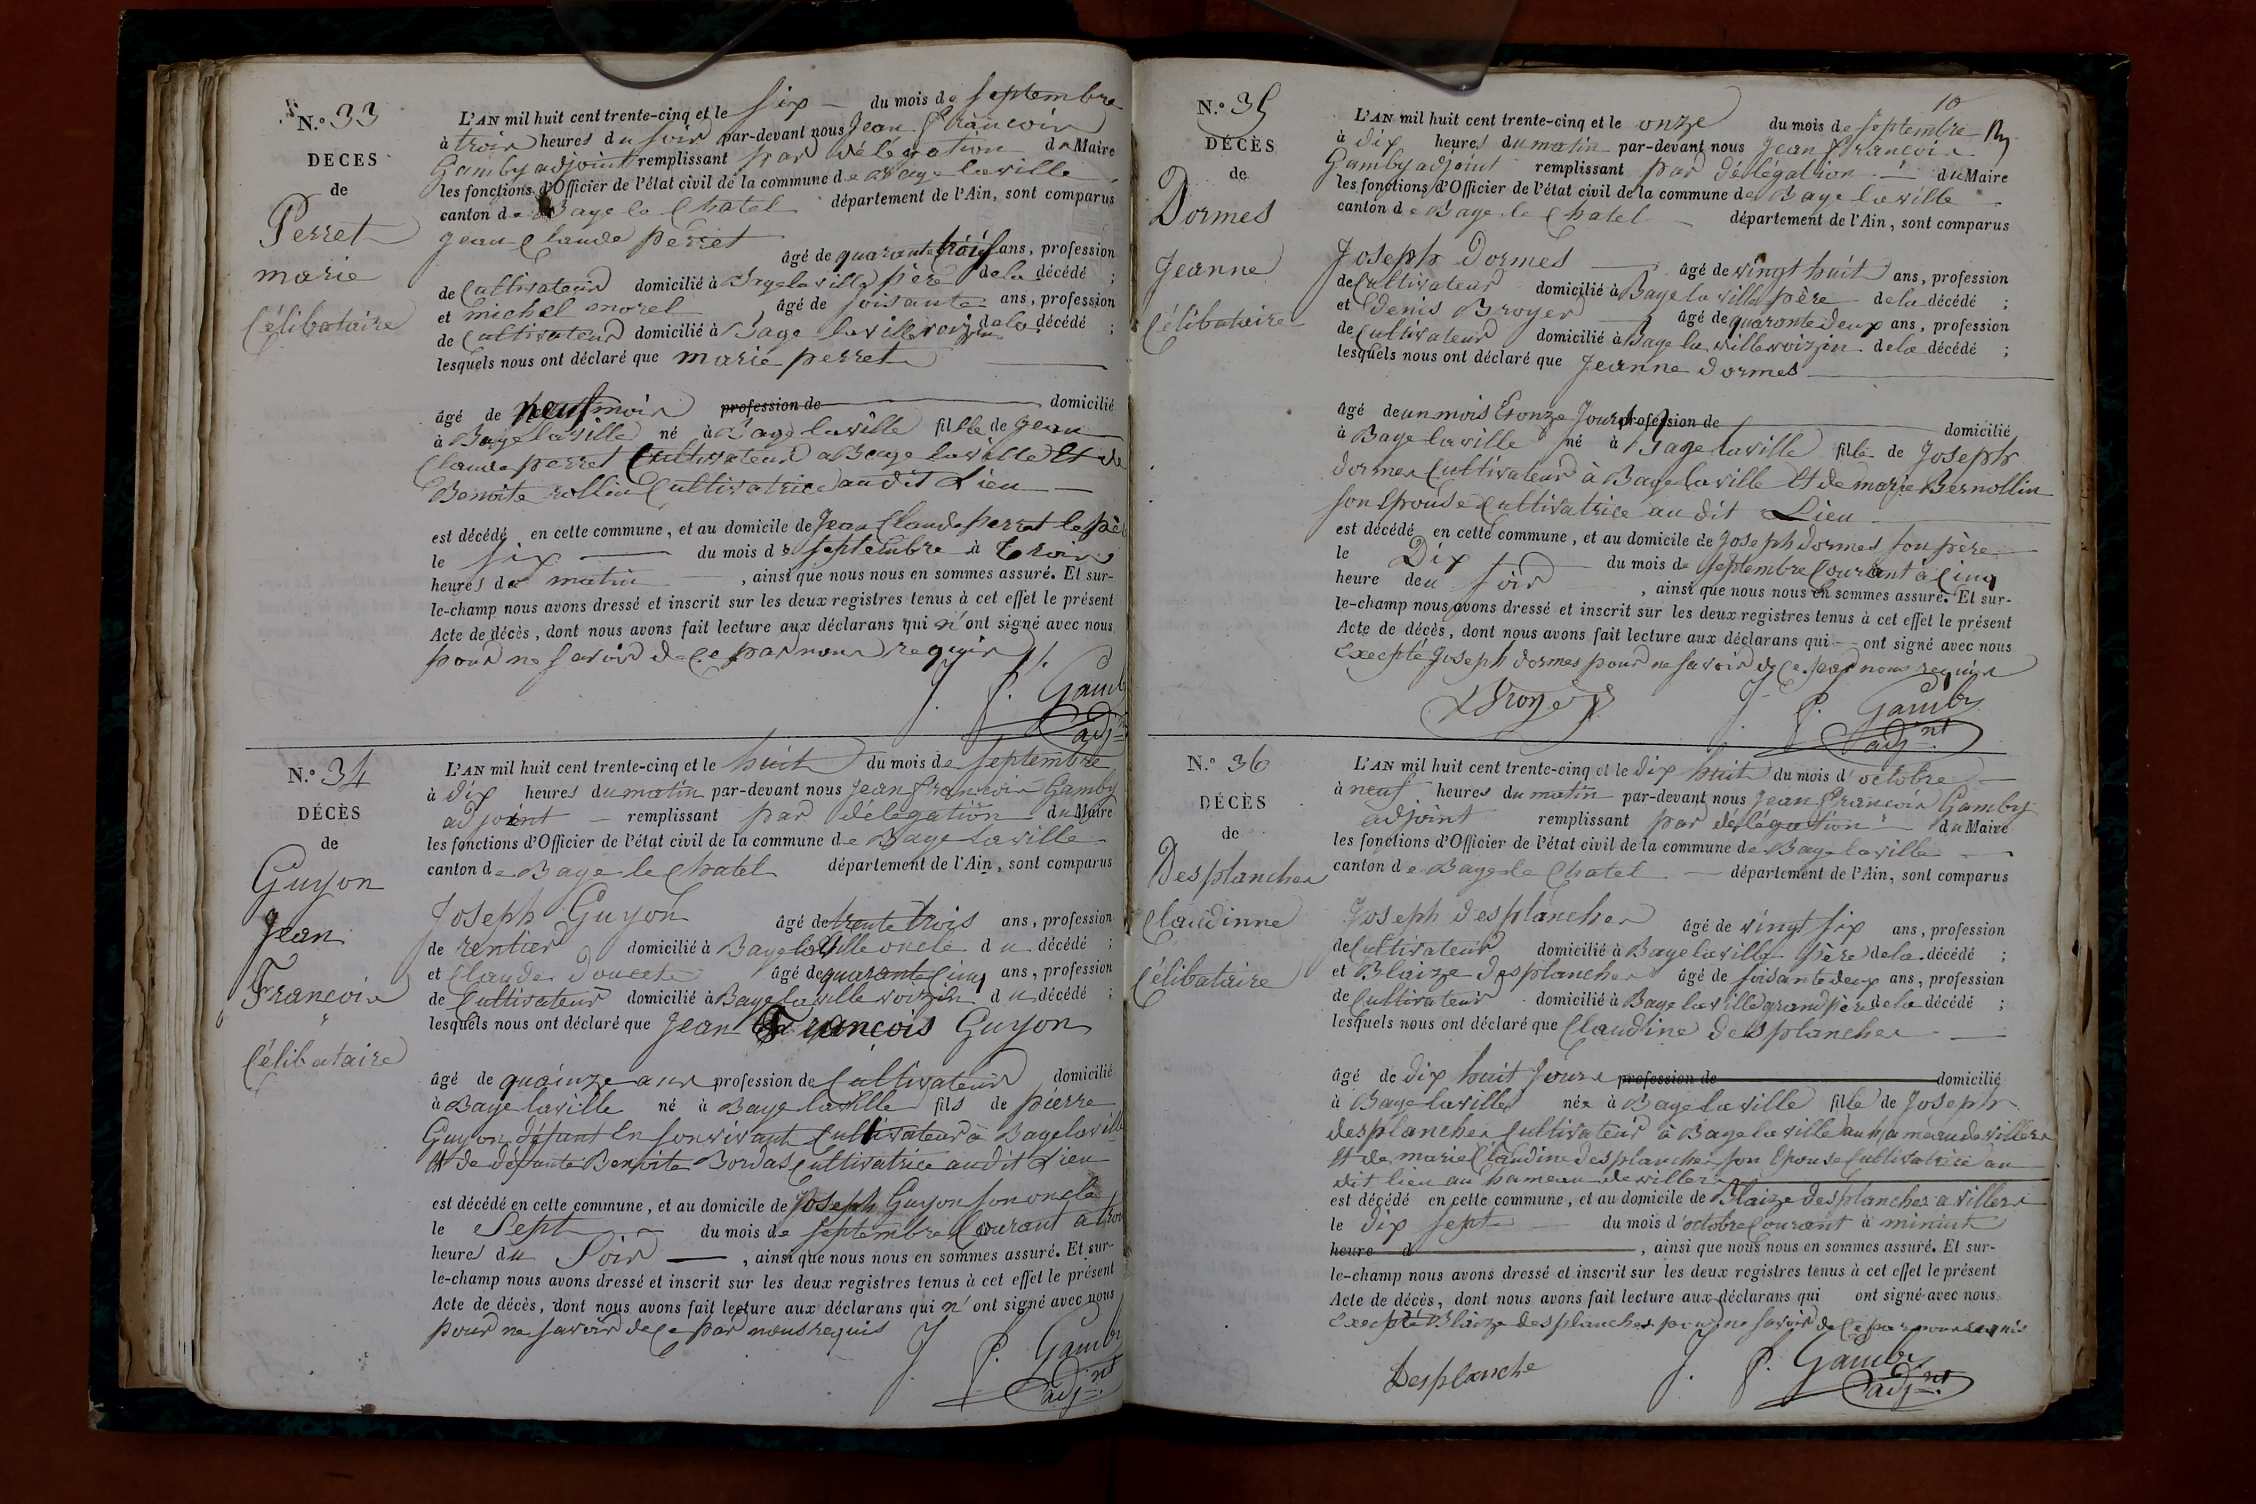 N.º 33
DÉCES
de
Perret
marie
Célibataire
L'AN mil huit cent trente-cinq et le six du mois de septembre
à trois heures du soir par-devant nous Jean François
Gamby adjoint remplissant par délégation du Maire
les fonctions d'Officier de l'état civil de la commune de Bage laville
canton de Bage le Chatel département de l'Ain, sont comparus
jean Claude perret âgé de quarante trois ans, profession
de Cultivateur domicilié à Bage laville père de la décédé ;
et michel morel âgé de soisante ans, profession
de Cultivateur domicilié à Bage laville voizin de la décédé ;
lesquels nous ont déclaré que marie perret
âgé de neuf mois profession de domicilié
à Bage laville né à Bage laville fille de jean
Claude perret Cultivateur a Bage laville Et de
Benoite rollin Cultivatrice audit Lieu
est décédé en cette commune, et au domicile de Jean Claude perret le père
le six du mois de septembre à trois
heures de matin, ainsi que nous nous en sommes assuré. Et sur-
le-champ nous avons dressé et inscrit sur les deux registres tenus à cet effet le présent
Acte de décès, dont nous avons fait lecture aux déclarans qui n'ont signé avec nous
pour ne savoir de ce par nous requis
J. f. Gamby
adj.nt
N.º 34
DÉCÈS
de
Guyon
Jean
Francois
Célibataire
L'AN mil huit cent trente-cinq et le huit du mois de septembre
à dix heures du matin par-devant nous Jean françois Gamby
adjoint remplissant par délégation du Maire
les fonctions d'Officier de l'état civil de la commune de Bage laville
canton de Bage le Chatel département de l'Ain, sont comparus
Joseph Guyon âgé de trente trois ans, profession
de rentier domicilié à Bage laville oncle du décédé ;
et Claude doucete âgé de quarante cinq ans, profession
de Cultivateur domicilié à Bage laville voizin du décédé ;
lesquels nous ont déclaré que Jean François Guyon
âgé de quainze ans profession de Cultivateur domicilié
à Bage laville né à Bage laville fils de pierre
Guyon défunt En sonvivant Cultivateur à Bage laville
Et de défunte Benoite Bordas Cultivatrice audit Lieu
est décédé en cette commune, et au domicile de Joseph Guyon son oncle
le Sept du mois de septembre Courant a trois
heures du Soir, ainsi que nous nous en sommes assuré. Et sur-
le-champ nous avons dressé et inscrit sur les deux registres tenus à cet effet le présent
Acte de décès, dont nous avons fait lecture aux déclarans qui n'ont signé avec nous
pour ne savoir de ce par nous requis
J. f. Gamby
adj.nt
10
N.º 35
DÉCÈS
de
Dormes
Jeanne
Célibataire
L'AN mil huit cent trente-cinq et le onze du mois de septembre
à dix heures du matin par-devant nous Jean francois
Gamby adjoint remplissant par délégation du Maire
les fonctions d'Officier de l'état civil de la commune de Bage laville
canton de Bage le Chatel département de l'Ain, sont comparus
Joseph Dormes âgé de vingt huit ans, profession
de Cultivateur domicilié à Bage la ville père de la décédé ;
et Denis Broyer âgé de quarante deux ans, profession
de Cultivateur domicilié à Bage la ville voizin de la décédé ;
lesquels nous ont déclaré que Jeanne dormes
âgé de un mois Et onze Jours profession de domicilié
à Bage laville né à Bage laville fille de Joseph
dormes Cultivateur à Bage laville Et de marie Bernollin
son Epouse Cultivatrice au dit Lieu
est décédé en cette commune, et au domicile de Joseph dormes son père
le Dix du mois de septembre Courant à Cinq
heure du soir, ainsi que nous nous en sommes assuré. Et sur-
le-champ nous avons dressé et inscrit sur les deux registres tenus à cet effet le présent
Acte de décès, dont nous avons fait lecture aux déclarans qui ont signé avec nous
Excepté Joseph dormes pour ne savoir de Ce par nous requis
Broyer J. f. Gamby
adj.nt
N.º 36
DÉCÈS
de
Desplanches
Claudinne
Célibataire
L'AN mil huit cent trente-cinq et le dix huit du mois d'octobre
à neuf heures du matin par-devant nous Jean francois Gamby
adjoint remplissant par délégation du Maire
les fonctions d'Officier de l'état civil de la commune de Bage laville
canton de Bage le Chatel département de l'Ain, sont comparus
Joseph desplanches âgé de vingt six ans, profession
de Cultivateur domicilié à Bage laville père de la décédé ;
et Blaize desplanches âgé de soisante deux ans, profession
de Cultivateur domicilié à Bage laville grand père de la décédé ;
lesquels nous ont déclaré que Claudine desplanches
âgé de dix huit Jours profession de domicilié
à Bage laville née à Bage laville fille de Joseph
desplanches Cultivateur à Bage la ville au hameau de villers
Et de marie Claudine desplanches son Epouse Cultivatrice au
dit lieu au hameau de villers
est décédé en cette commune, et au domicile de Blaize desplanches a villers
le dix sept du mois d'octobre Courant à minuit
heure d, ainsi que nous nous en sommes assuré. Et sur-
le-champ nous avons dressé et inscrit sur les deux registres tenus à cet effet le présent
Acte de décès, dont nous avons fait lecture aux déclarans qui ont signé avec nous
Excepté Blaize desplanches pour ne savoir de Ce par nous requis
Desplanche J. f. Gamby
adj.nt